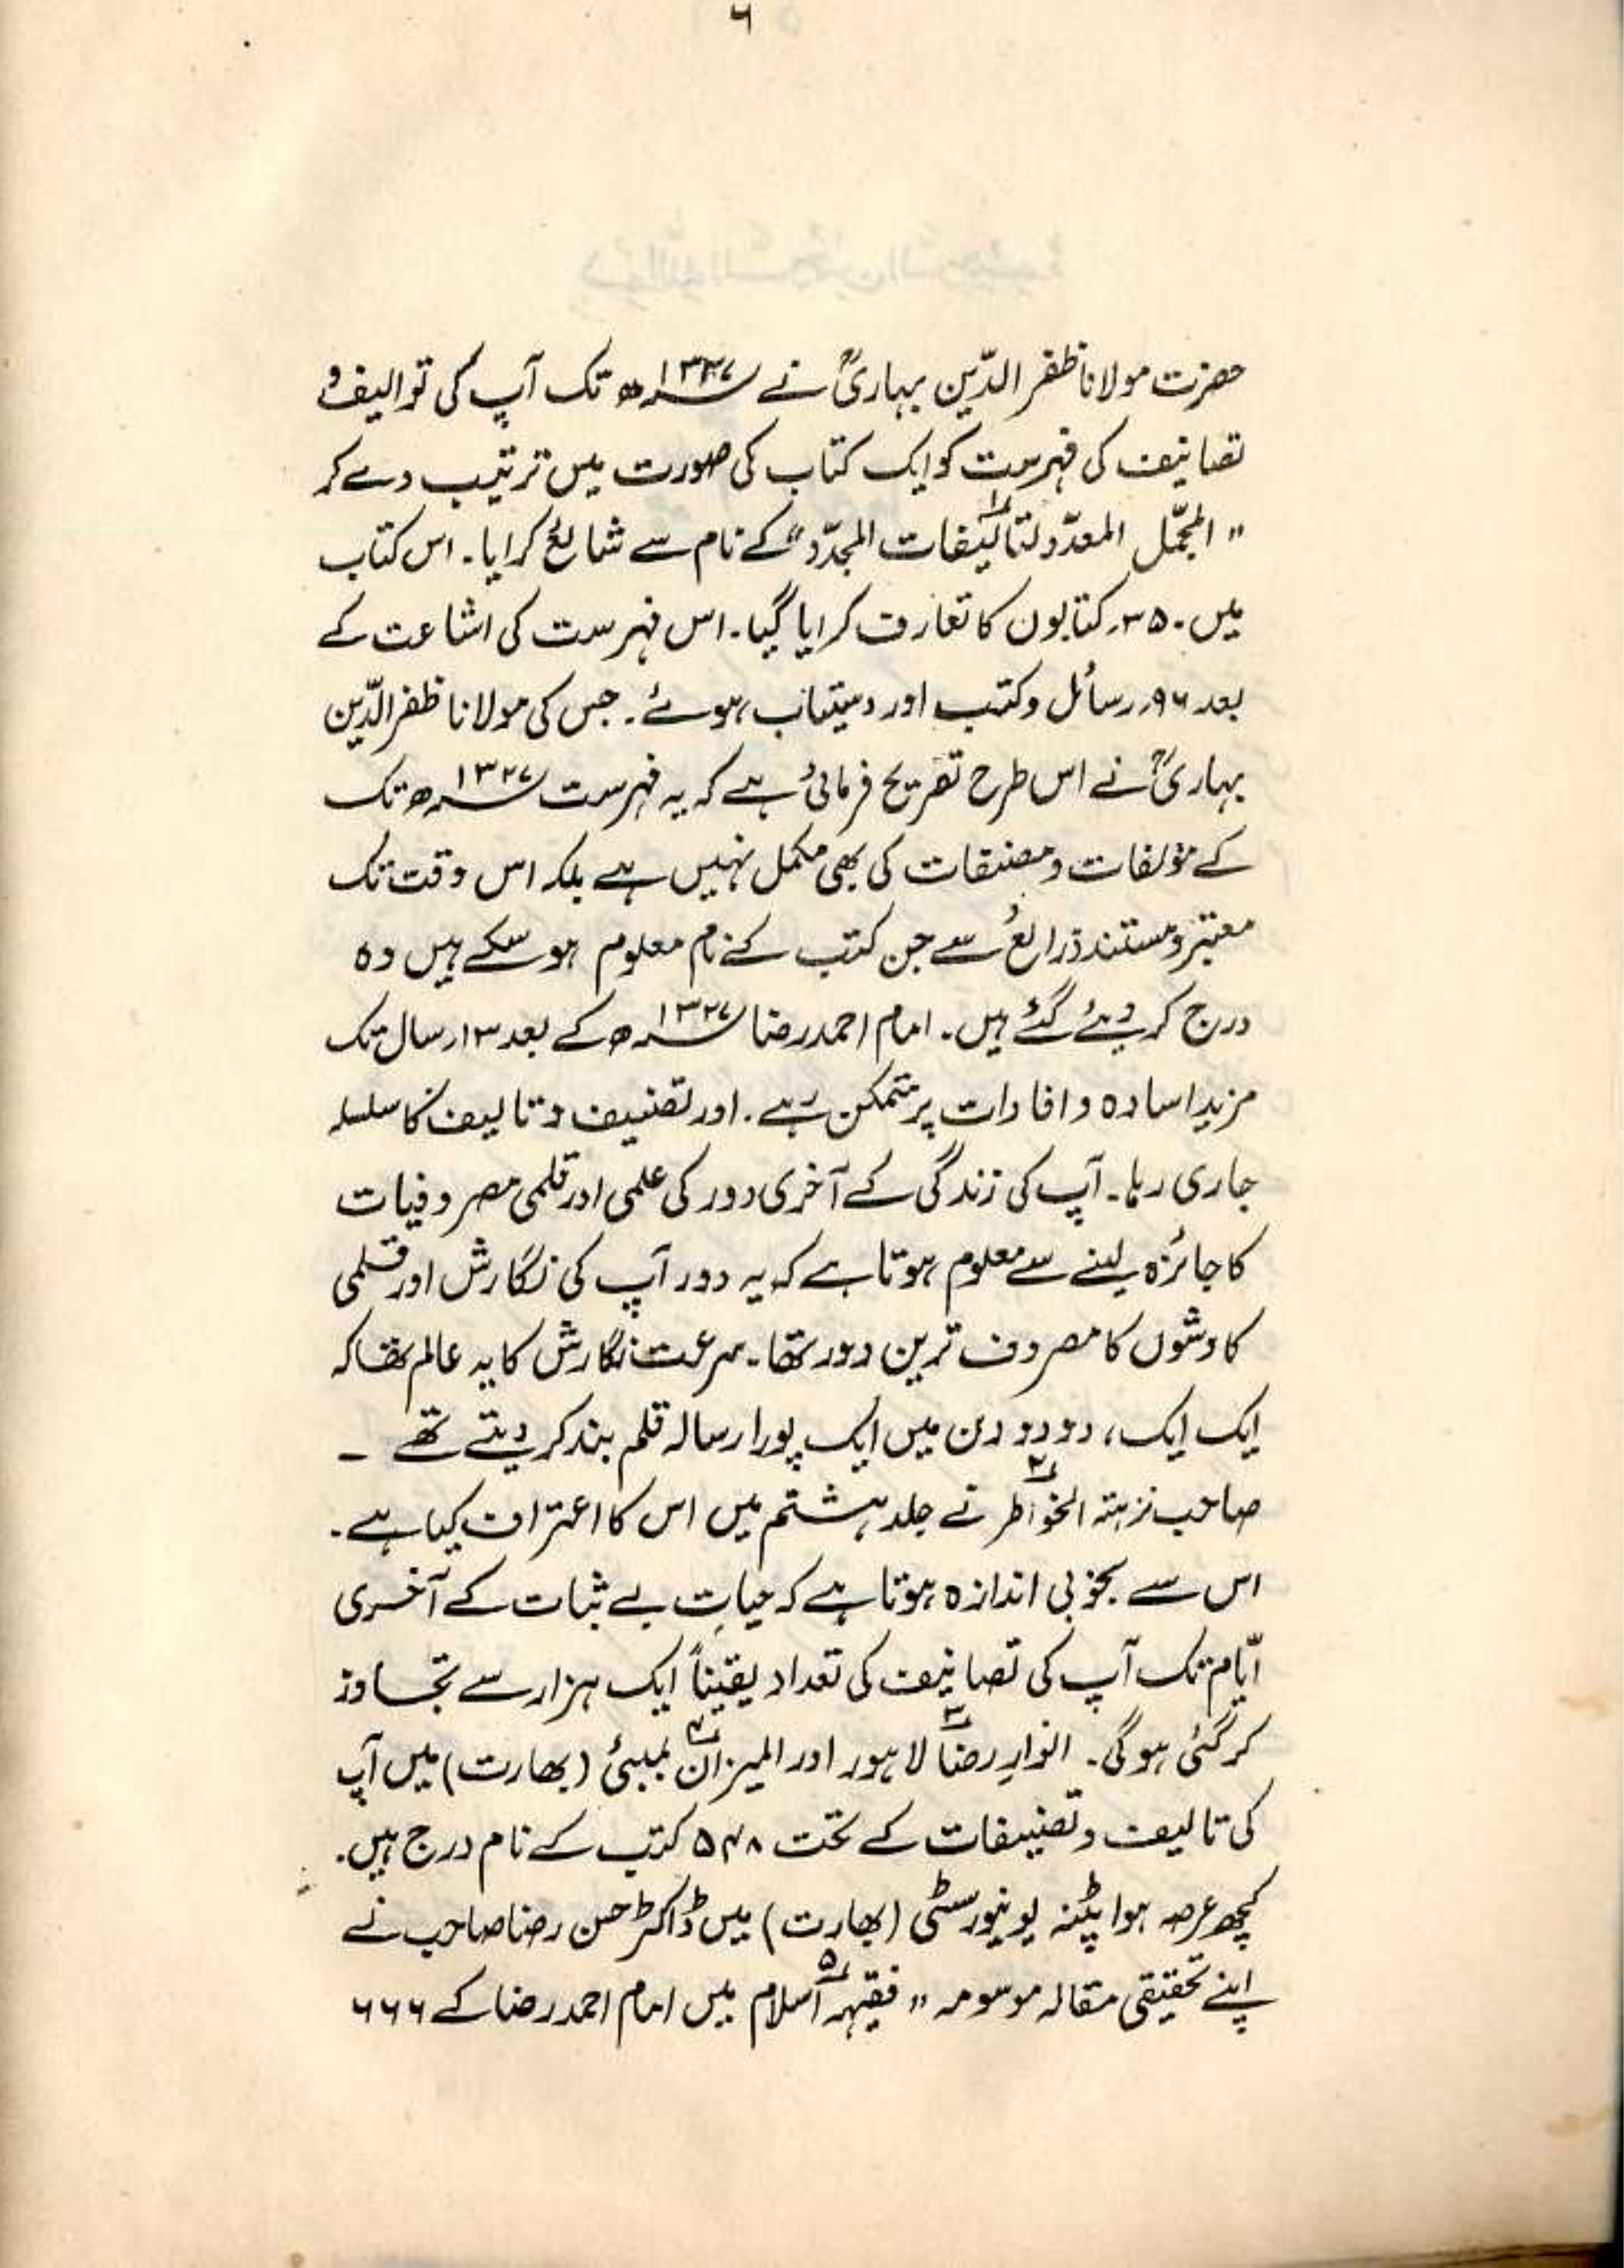 ۶
حضرت مولانا ظفر الدّین بہاریؒ نے ۱۳۲۷ھ تک آپ کی توالیف و
تصانیف کی فہرست کو ایک کتاب کی صورت میں ترتیب دے کر
"المجمّل المعدّد لتالیفات المجدّد"۱ کے نام سے شائع کرایا۔ اس کتاب
میں ۳۵۰ کتابوں کا تعارف کرایا گیا۔ اس فہرست کی اشاعت کے
بعد ۹۶ رسائل و کتب اور دستیاب ہوئے۔ جس کی مولانا ظفر الدّین
بہاریؒ نے اس طرح تصریح فرمائی ہے کہ یہ فہرست ۱۳۲۷ھ تک
کے مؤلفات و مصنفات کی بھی مکمل نہیں ہے بلکہ اس وقت تک
معتبر و مستند ذرائع سے جن کتب کے نام معلوم ہو سکے ہیں وہ
درج کر دیئے گئے ہیں۔ امام احمد رضا ۱۳۲۷ھ کے بعد ۱۳ سال تک
مزید اسادہ و افادات پر متمکن رہے۔ اور تصنیف و تالیف کا سلسلہ
جاری رہا۔ آپ کی زندگی کے آخری دور کی علمی اور قلمی مصروفیات
کا جائزہ لینے سے معلوم ہوتا ہے کہ یہ دور آپ کی نگارش اور قلمی
کاوشوں کا مصروف ترین دور تھا۔ سرعت نگارش کا یہ عالم تھا کہ
ایک ایک، دو دو دن میں ایک پورا رسالہ قلم بند کر دیتے تھے ۔
صاحب نزہتہ الخواطر۲ نے جلد ہشتم میں اس کا اعتراف کیا ہے۔
اس سے بخوبی اندازہ ہوتا ہے کہ حیاتِ بے ثبات کے آخری
ایّام تک آپ کی تصانیف کی تعداد یقیناً ایک ہزار سے تجاوز
کر گئی ہوگی۔ انوارِ رضا۳ لاہور اور المیزان۴ بمبئی (بھارت) میں آپ
کی تالیف و تصنیفات کے تحت ۵۴۸ کتب کے نام درج ہیں۔
کچھ عرصہ ہوا پٹنہ یونیورسٹی (بھارت) میں ڈاکٹر حسن رضا صاحب نے
اپنے تحقیقی مقالہ موسومہ "فقیہہ اسلام۵ میں امام احمد رضا کے ۶۶۶